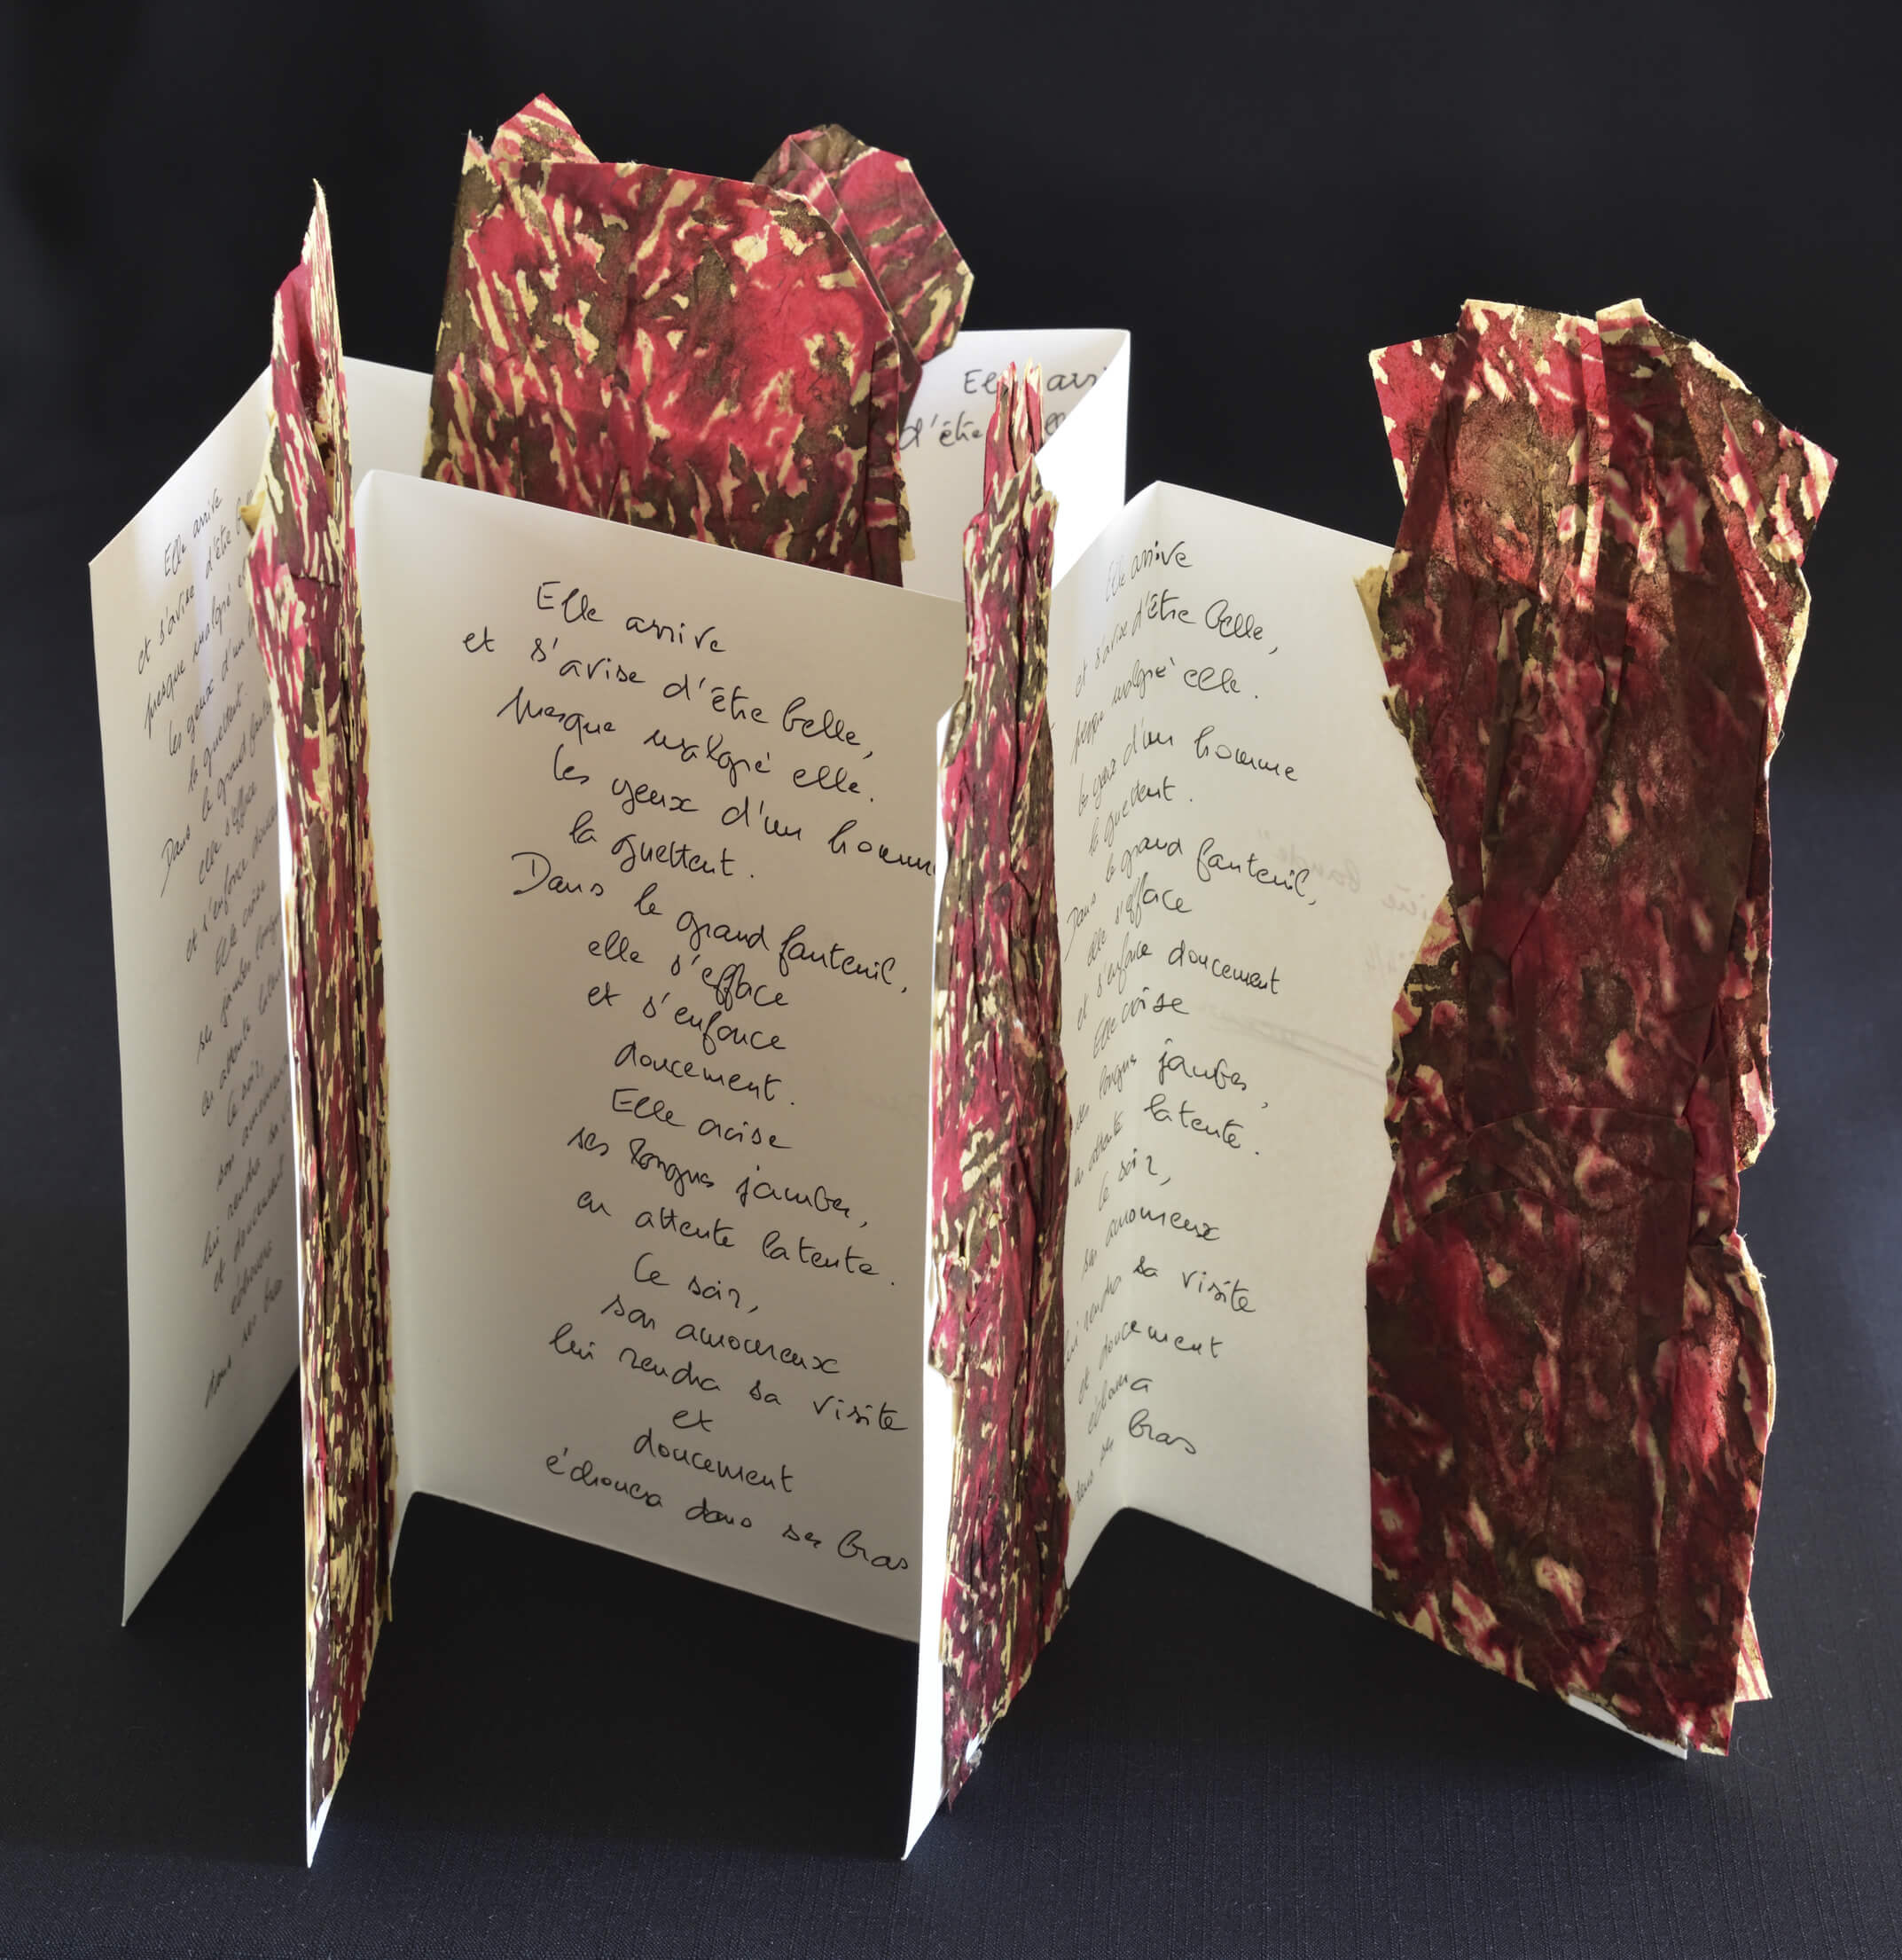 Elle arrive
et s'avise d'être
presque malgré
les yeux d'un
la guettent.
Dans le grand
elle s'efface
et s'enfonce
Elle croise
en attente
Ce soir,
son amoureux
lui rendra
et doucement
échouera
dans ses bras
d'être
Elle arrive
et s'avise d'être belle,
presque malgré elle.
les yeux d'un homme
la guettent.
Dans le grand fauteuil,
elle s'efface
et s'enfonce
doucement.
Elle croise
ses longues jambes,
en attente latente.
Ce soir,
son amoureux
lui rendra sa visite
et
doucement
échouera dans ses bras
Elle arrive
et s'avise d'être belle,
presque malgré elle.
les yeux d'un homme
la guettent.
Dans le grand fauteuil,
elle s'efface
et s'enfonce doucement
Elle croise
ses longues jambes,
en attente latente.
Ce soir,
son amoureux
lui rendra sa visite
et doucement
échouera
dans ses bras